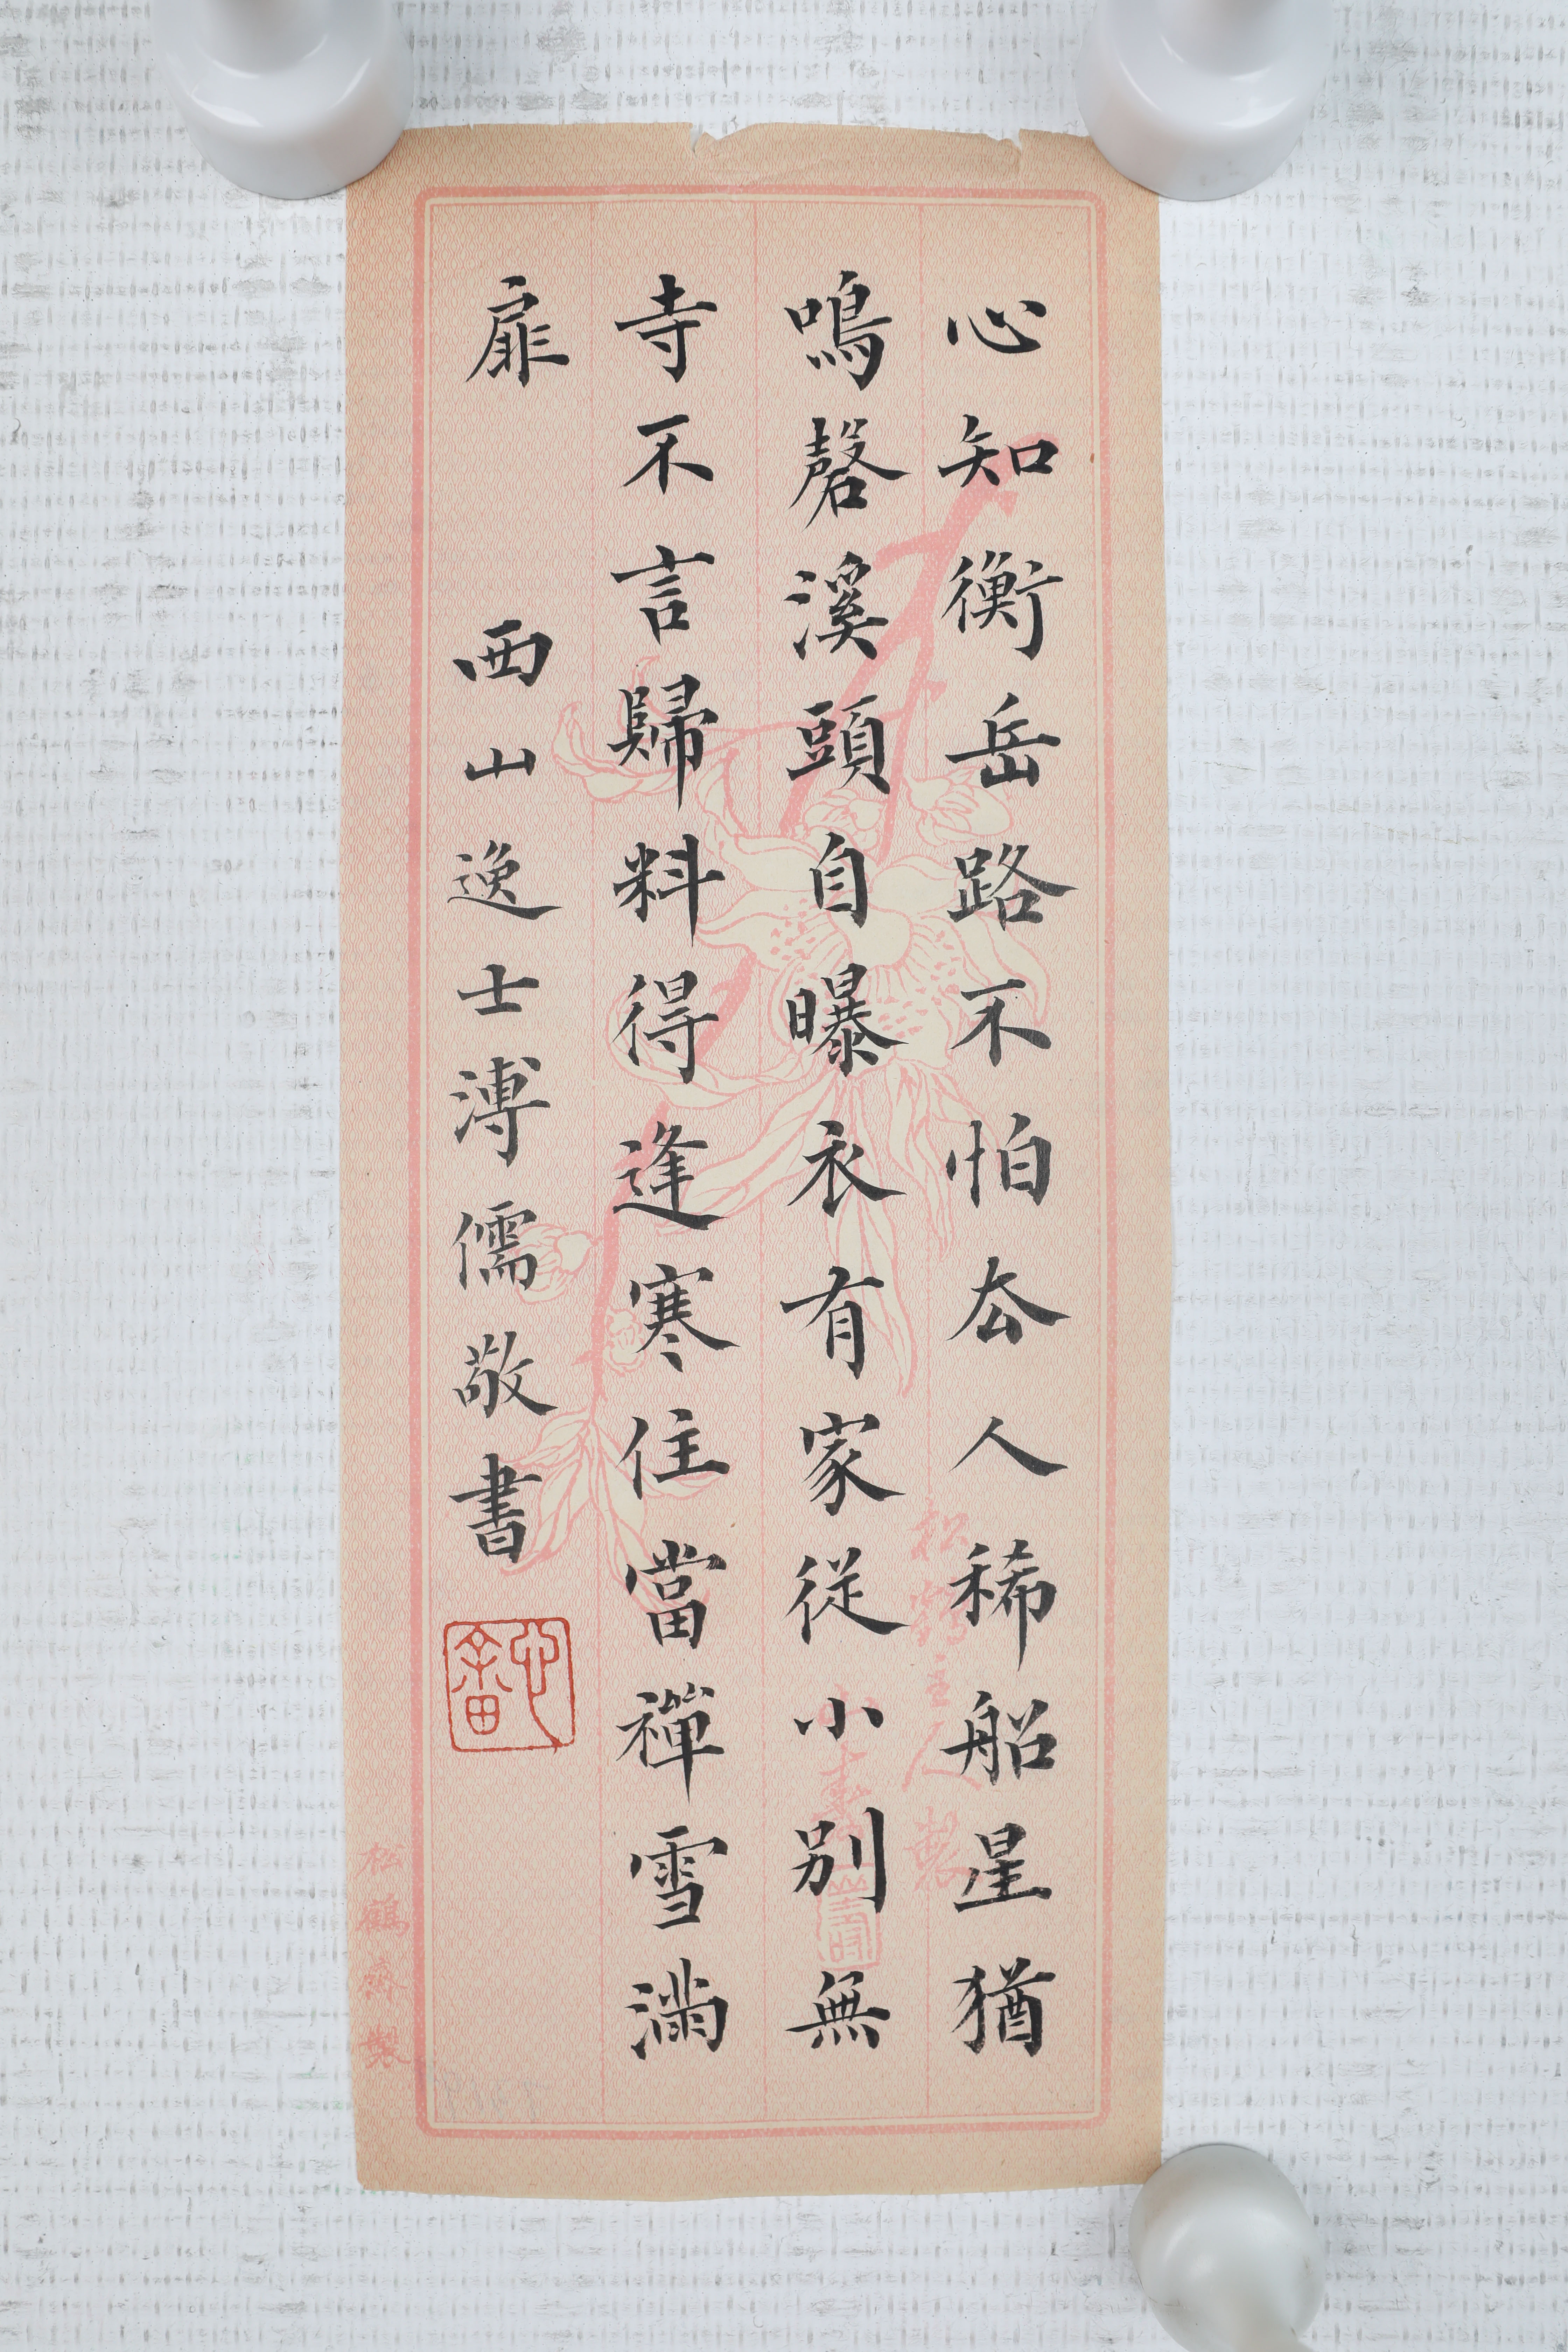 心知衡岳路不怕厺人稀船星猶
鳴磬溪頭自曝衣有家從小別無
寺不言歸料得逢寒住當禪雪滿
扉
西山逸士溥儒敬書
心畬
松鶴主人製
松鶴齋製